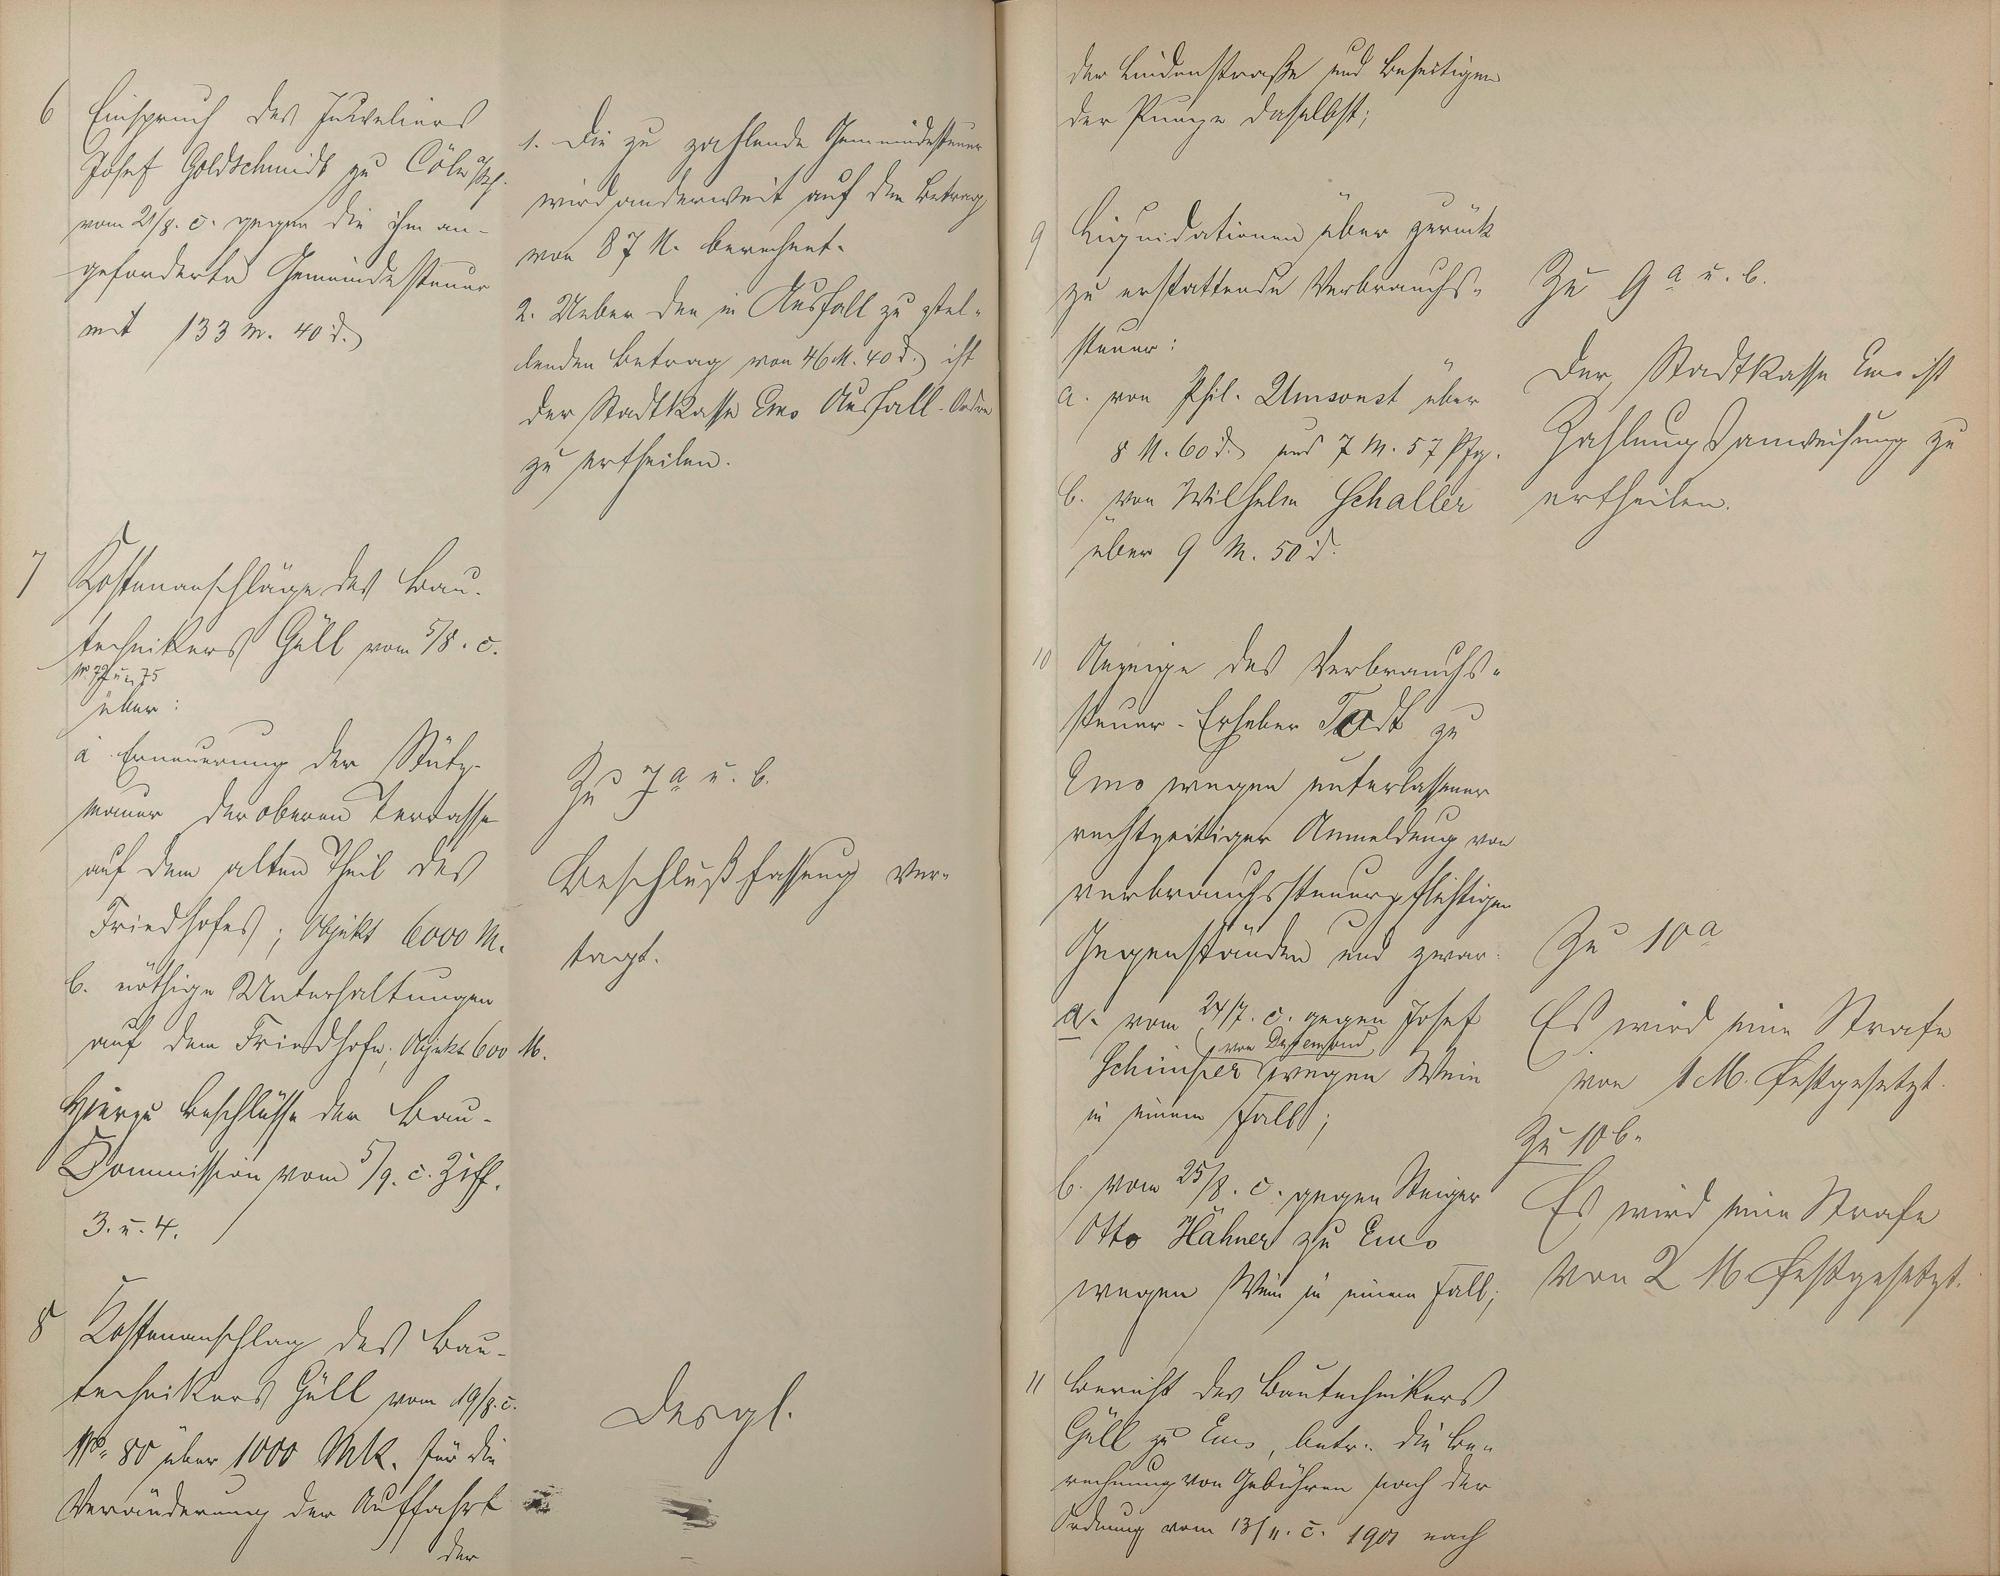 6 Einspruch des Juweliers
Josef Goldschmidt zu Cöln a/Rh.
vom 21/8. c. gegen die ihm an-
geforderte Gemeindesteuer
mit 133 M. 40 d.
1. Die zu zahlende Gemeindesteuer
wird anderweit auf den Betrag
von 87 M. berechnet.
2. Ueber den in Ausfall zu stel-
lenden Betrag von 46 M. 40 d. ist
der Stadtkasse Ems Ausfall-Ordre
zu ertheilen.
7 Kostenanschläge des Bau-
technikers Güll vom 5/8. c.
u. 75
über:
a Erneuerung der Stütz-
mauer der oberen Terrasse
auf dem alten Theil des
Friedhofes; Objekt 6000 M.
b. nöthige Unterhaltungen
auf dem Friedhofe; Objekt 600 M.
Hierzu Beschlüsse der Bau-
Commission vom 5/9. c. Ziff.
3. u. 4.
Zu 7 a u. b.
Beschlußfassung ver-
tagt.
8 Kostenanschlag des Bau-
technikers Güll vom 19/8. c.
No. 80 über 1000 Mk. für die
Veränderung der Auffahrt
der
Desgl.
der Lindenstraße und Beseitigen
der Pumpe daselbst;
9 Liquidationen über zurück
zu erstattende Verbrauchs-
steuer:
a. von Phil. Umsonst über
8 M. 60 d. und 7 M. 57 Pfg.
b. von Wilhelm Schaller
über 9 M. 50 d.
Zu 9 a u. b.
Der Stadtkasse Ems ist
Zahlungsanweisung zu
ertheilen.
10 Anzeige des Verbrauchs-
steuer-Erheber Todt zu
Ems wegen unterlassener
rechtzeitiger Anmeldung von
verbrauchssteuerpflichtigen
Gegenständen und zwar:
a. vom 24/7. c. gegen Josef
von
wegen Wein
in einem Fall;
b. vom 25/8. c. gegen Steiger
Otto Hähner zu Ems
wegen Wein in einem Fall;
Zu 10 a
Es wird eine Strafe
von 1 M. festgesetzt.
Zu 10 b.
Es wird eine Strafe
von 2 M. festgesetzt.
11 Bericht des Bautechnikers
Güll zu Ems, betr. die Be-
rechnung von Gebühren nach der
Ordnung vom 13/11. c. 1901 nach